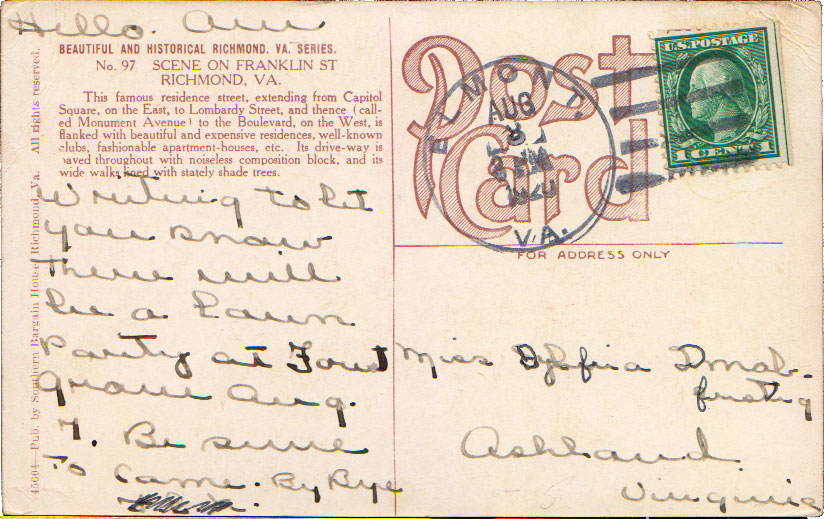 Hello. Ann
BEAUTIFUL AND HISTORICAL RICHMOND, VA. SERIES.
No. 97 SCENE ON FRANKLIN ST
RICHMOND, VA.
This famous residence street, extending from Capitol
Square, on the East, to Lombardy Street, and thence (call-
ed Monument Avenue) to the Boulevard, on the West, is
flanked with beautiful and expensive residences, well-known
clubs, fashionable apartment-houses, etc. Its drive-way is
paved throughout with noiseless composition block, and its
wide walks lined with stately shade trees.
Writing to let
you know
there will
be a Lawn
Party at
Aug.
7. Be sure
To Came. By Bye
45604—Pub. by Southern Bargain House, Richmond, Va. All rights reserved.
Post
Card
ELMONT
AUG
8
1920
VA.
U.S. POSTAGE
1 CENT 1
FOR ADDRESS ONLY
Miss
Ashland
Virginia